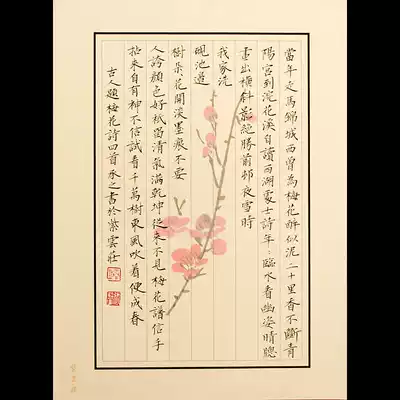 當年走馬錦城西曾為梅花醉似泥二十里香不斷青
陽宮到浣花溪自讀西湖處士詩年:臨水看幽姿晴牕
畫出橫斜影絕勝前邨夜雪時
我家洗
硯池邊
樹朵花開淡墨痕不要
人誇顏色好祇留清氣滿乾坤從來不見梅花譜信手
拈來自有神不信試看千萬樹東風吹着便成春
古人題梅花詩四首 承之書於紫雲莊